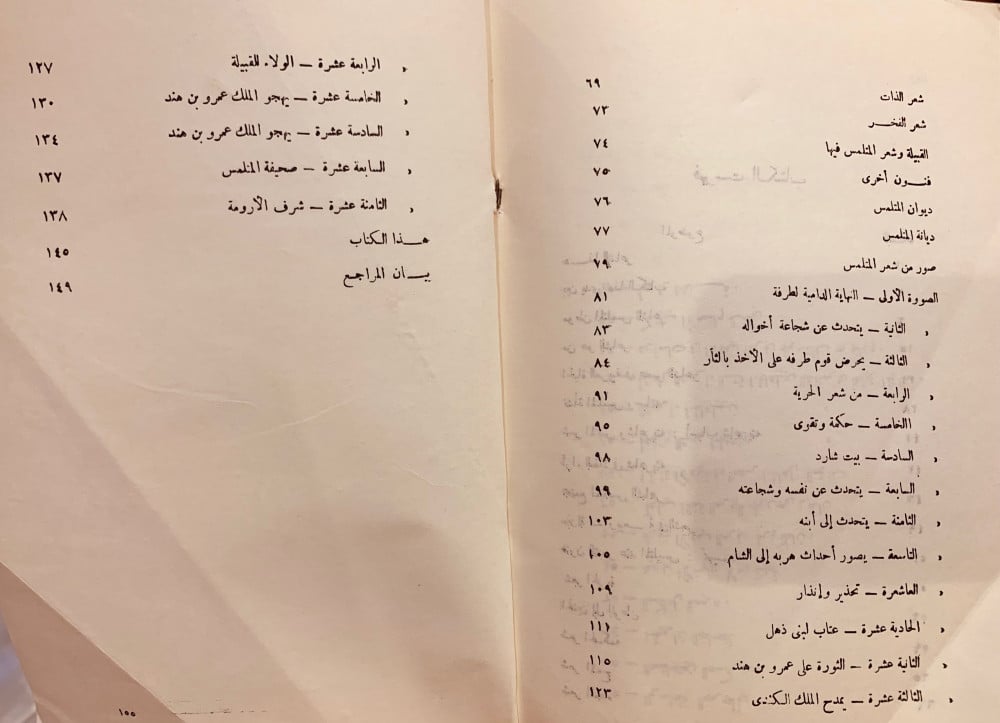 شعر الذات ٦٩
شعر الفخـــر ٧٣
القبيلة وشعر المتلمس فيها ٧٤
فنـــون أخرى ٧٥
ديوان المتلمس ٧٦
ديانة المتلمس ٧٧
صور من شعر المتلمس ٧٩
الصورة الأولى – النهاية الدامية لطرفة ٨١
« الثانية – يتحدث عن شجاعة أخواله ٨٣
« الثالثة – يحرض قوم طرفه على الأخذ بالثأر ٨٤
« الرابعة – من شعر الحرية ٩١
« االخامسة – حكمة وتقوى ٩٥
« السادسة – بيت شارد ٩٨
« السابعة – يتحدث عن نفسه وشجاعته ٩٩
« الثامنة – يتحدث إلى أبنه ١٠٣
« التاسعة – يصور أحداث هربه إلى الشام ١٠٥
« العاشعرة – تحذير وإنذار ١٠٩
« الحادية عشرة – عتاب لبنى ذهل ١١١
« الثانية عشرة – الثورة على عمرو بن هند ١١٥
« الثالثة عشرة – يمدح الملك الكندى ١٢٣
« الرابعة عشرة – الولاء للقبيلة ١٢٧
« الخامسة عشرة – يهجو الملك عمرو بن هند ١٣٠
« السادسة عشرة – يهجو الملك عمرو بن هند ١٣٤
« السابعة عشرة – صحيفة المتلمس ١٣٧
« الثامنة عشرة – شرف الأرومة ١٣٨
هـــذا الكتاب ١٤٥
بيـــان المراجع ١٤٩
١٥٥